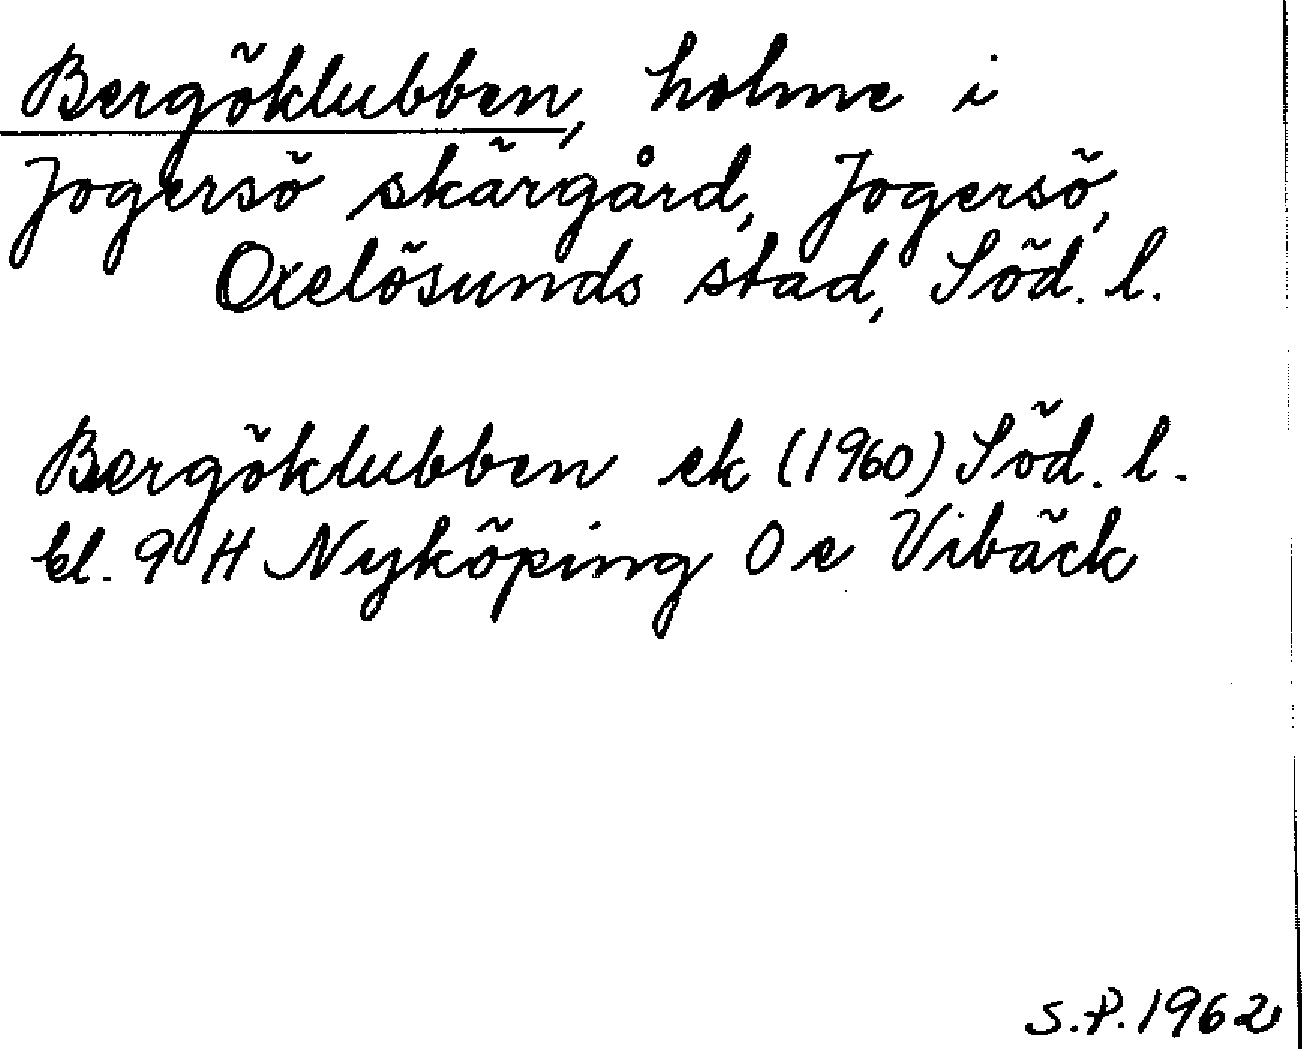 Bergöklubben, holme i
Jogersö skärgård, Jogersö,
Oxelösunds stad, Söd. l.
Bergöklubben ek (1960) Söd. l.
bl. 9 H Nyköping O e Vibäck
S.P. 1962